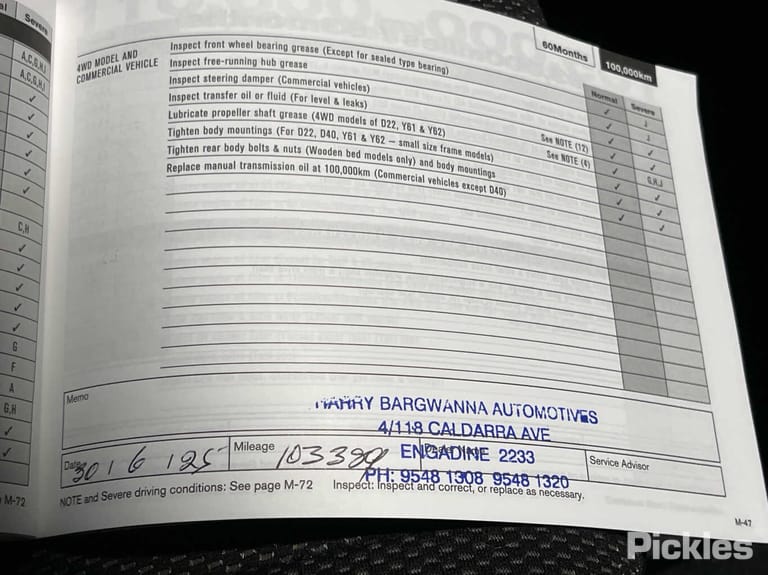 al
Severe
A,C,G,H,I
A,C,G,H,I
✓
✓
✓
✓
✓
✓
C,H
✓
✓
✓
✓
G
F
A
G,H
✓
✓
M-72
60Months
100,000km
4WD MODEL AND
COMMERCIAL VEHICLE
Normal
Severe
Inspect front wheel bearing grease (Except for sealed type bearing)
Inspect free-running hub grease
Inspect steering damper (Commercial vehicles)
Inspect transfer oil or fluid (For level & leaks)
Lubricate propeller shaft grease (4WD models of D22, Y61 & Y62) See NOTE (12)
Tighten body mountings (For D22, D40, Y61 & Y62 – small size frame models) See NOTE (4)
Tighten rear body bolts & nuts (Wooden bed models only) and body mountings
Replace manual transmission oil at 100,000km (Commercial vehicles except D40)
G,H,J
Memo
HARRY BARGWANNA AUTOMOTIVES
4/118 CALDARRA AVE
ENGADINE 2233
PH: 9548 1308 9548 1320
Date 30 / 6 / 25
Mileage
Service Advisor
NOTE and Severe driving conditions: See page M-72
Inspect: Inspect and correct, or replace as necessary.
M-47
Pickles